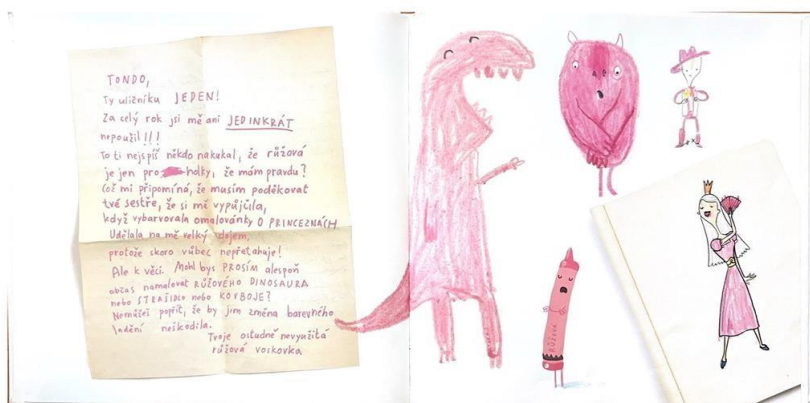 TONDO,
Ty uličníku JEDEN!
Za celý rok jsi mě ani JEDINKRÁT
nepoužil!!!
To ti nejspíš někdo nakukal, že růžová
je jen pro holky, že mám pravdu?
Což mi připomíná, že musím poděkovat
tvé sestře, že si mě vypůjčila,
když vybarvovala omalovánky O PRINCEZNÁCH
Udělala na mě velký dojem,
protože skoro vůbec nepřetahuje!
Ale k věci. Mohl bys PROSÍM alespoň
občas namalovat RŮŽOVÉHO DINOSAURA
nebo STRAŠIDLO nebo KOVBOJE?
Nemůžeš popřít, že by jim změna barevného
ladění neškodila.
Tvoje ostudně nevyužitá
růžová voskovka
RŮŽOVÁ